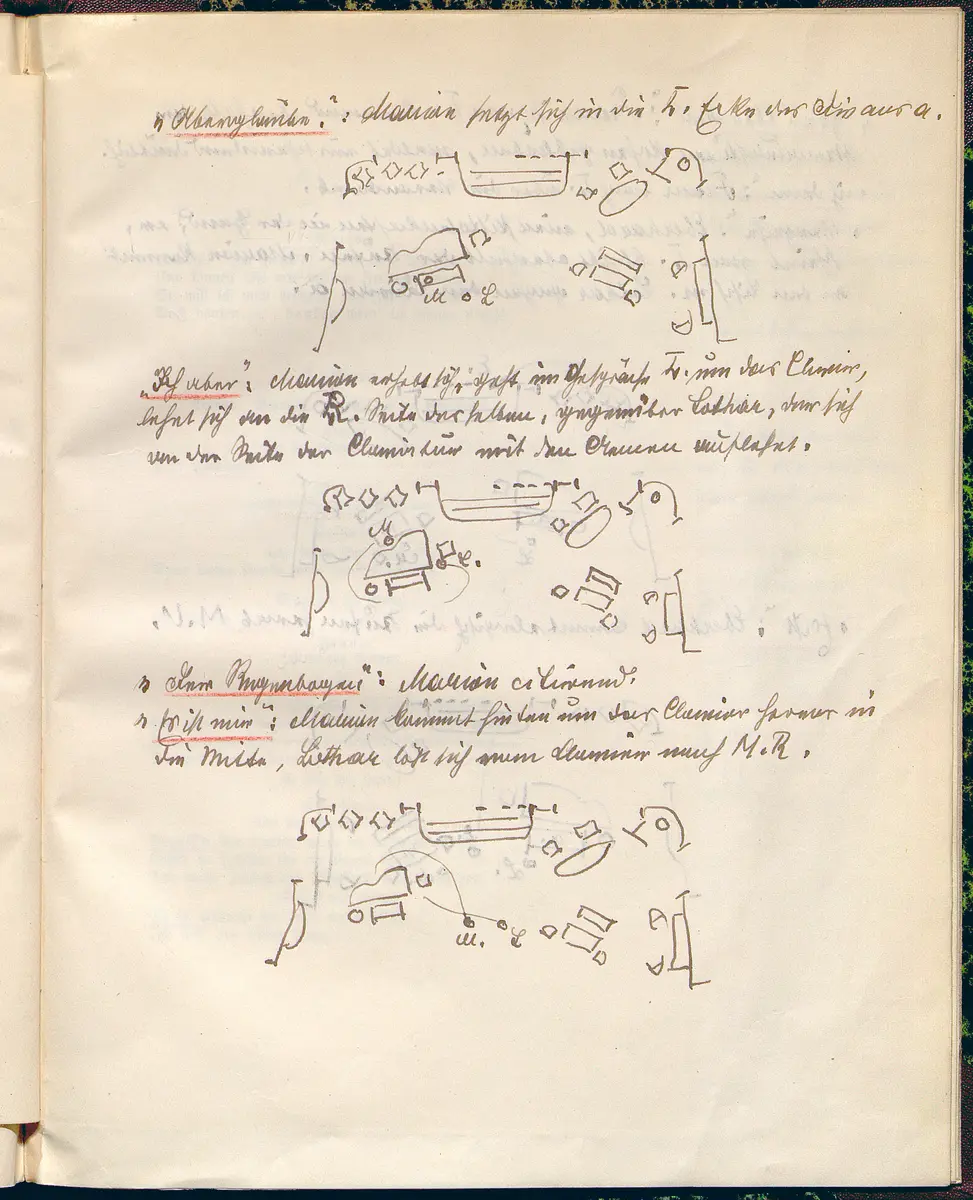 "Aberglaube.": Marion setzt sich in die L. Ecke des Divans a.
M L
"Ich aber": Marion erhebt sich, geht im Gespräche L. um das Clavier,
lehnt sich an die R. Seite desselben, gegenüber Lothar, der sich
an der Seite der Claviatur mit den Armen auflehnt.
M
L.
"Der Regenbogen": Marion citirend.
"Es ist mir": Marion kommt hinten um das Clavier hervor in
die Mitte, Lothar löst sich vom Clavier nach M. R.
M. L